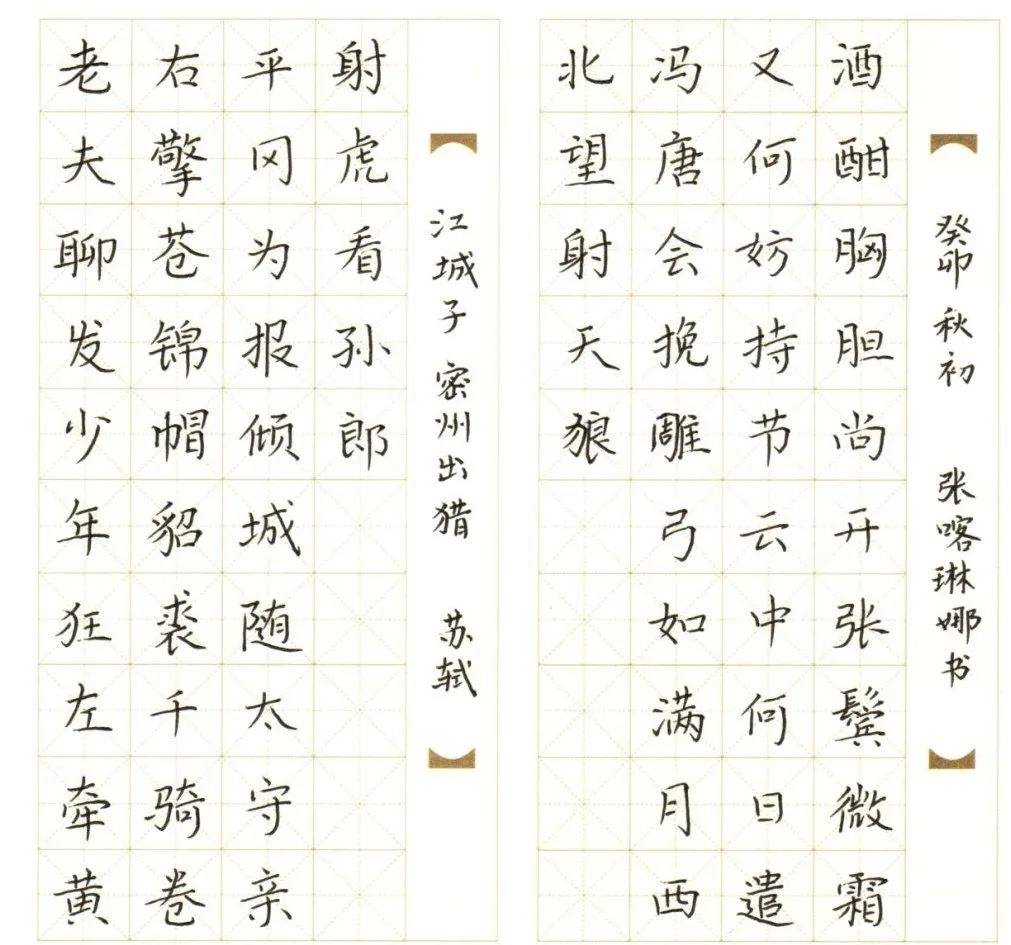 江城子 密州出猎 苏轼
老夫聊发少年狂左牵黄
右擎苍锦帽貂裘千骑卷
平冈为报倾城随太守亲
射虎看孙郎
酒酣胸胆尚开张鬓微霜
又何妨持节云中何日遣
冯唐会挽雕弓如满月西
北望射天狼
癸卯秋初 张喀琳娜书